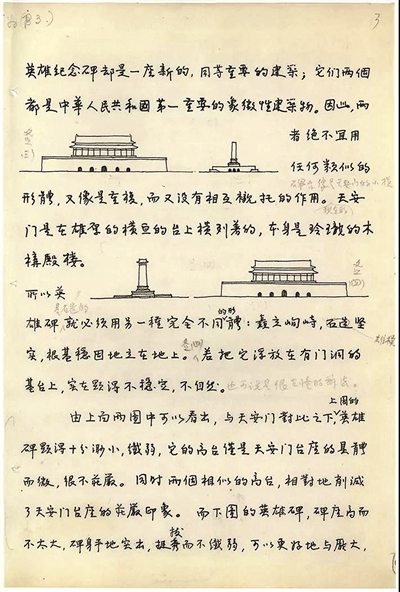 3
英雄纪念碑却是一座新的,同等重要的建築;它们两個
都是中華人民共和國第一重要的象徵性建築物。因此,两
者绝不宜用
任何類似的
形體,又像是重複,而又没有相互襯托的作用。天安
門是在雄厚的横亘的台上横列著的,本身是玲瓏的木
構殿楼。
所以英
雄碑就必须用另一種完全不同的形體:矗立峋峙,石造坚
实,根基穩固地立在地上。若把它浮放在有门洞的
基台上,实在顯得不穩定,不自然。
由上面两图中可以看出,与天安门對比之下,上图的英雄
碑顯得十分渺小,纖弱,它的高台僅是天安门台座的具體
而微,很不莊嚴。同时两個相似的高台,相對地削減
了天安门台座的莊嚴印象。而下图的英雄碑,碑座高而
不太大,碑身平地突出,挺拔而不纖弱,可以更好地与龐大,